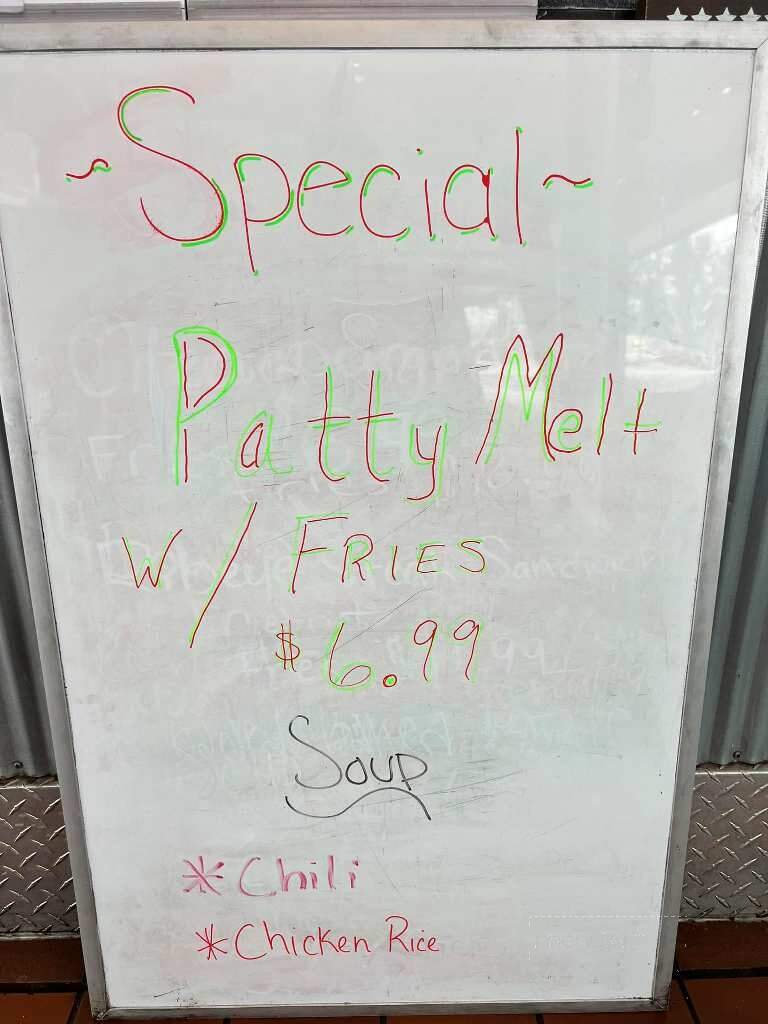 ~Special~
Patty Melt
w/ FRIES
$6.99
Soup
* Chili
* Chicken Rice